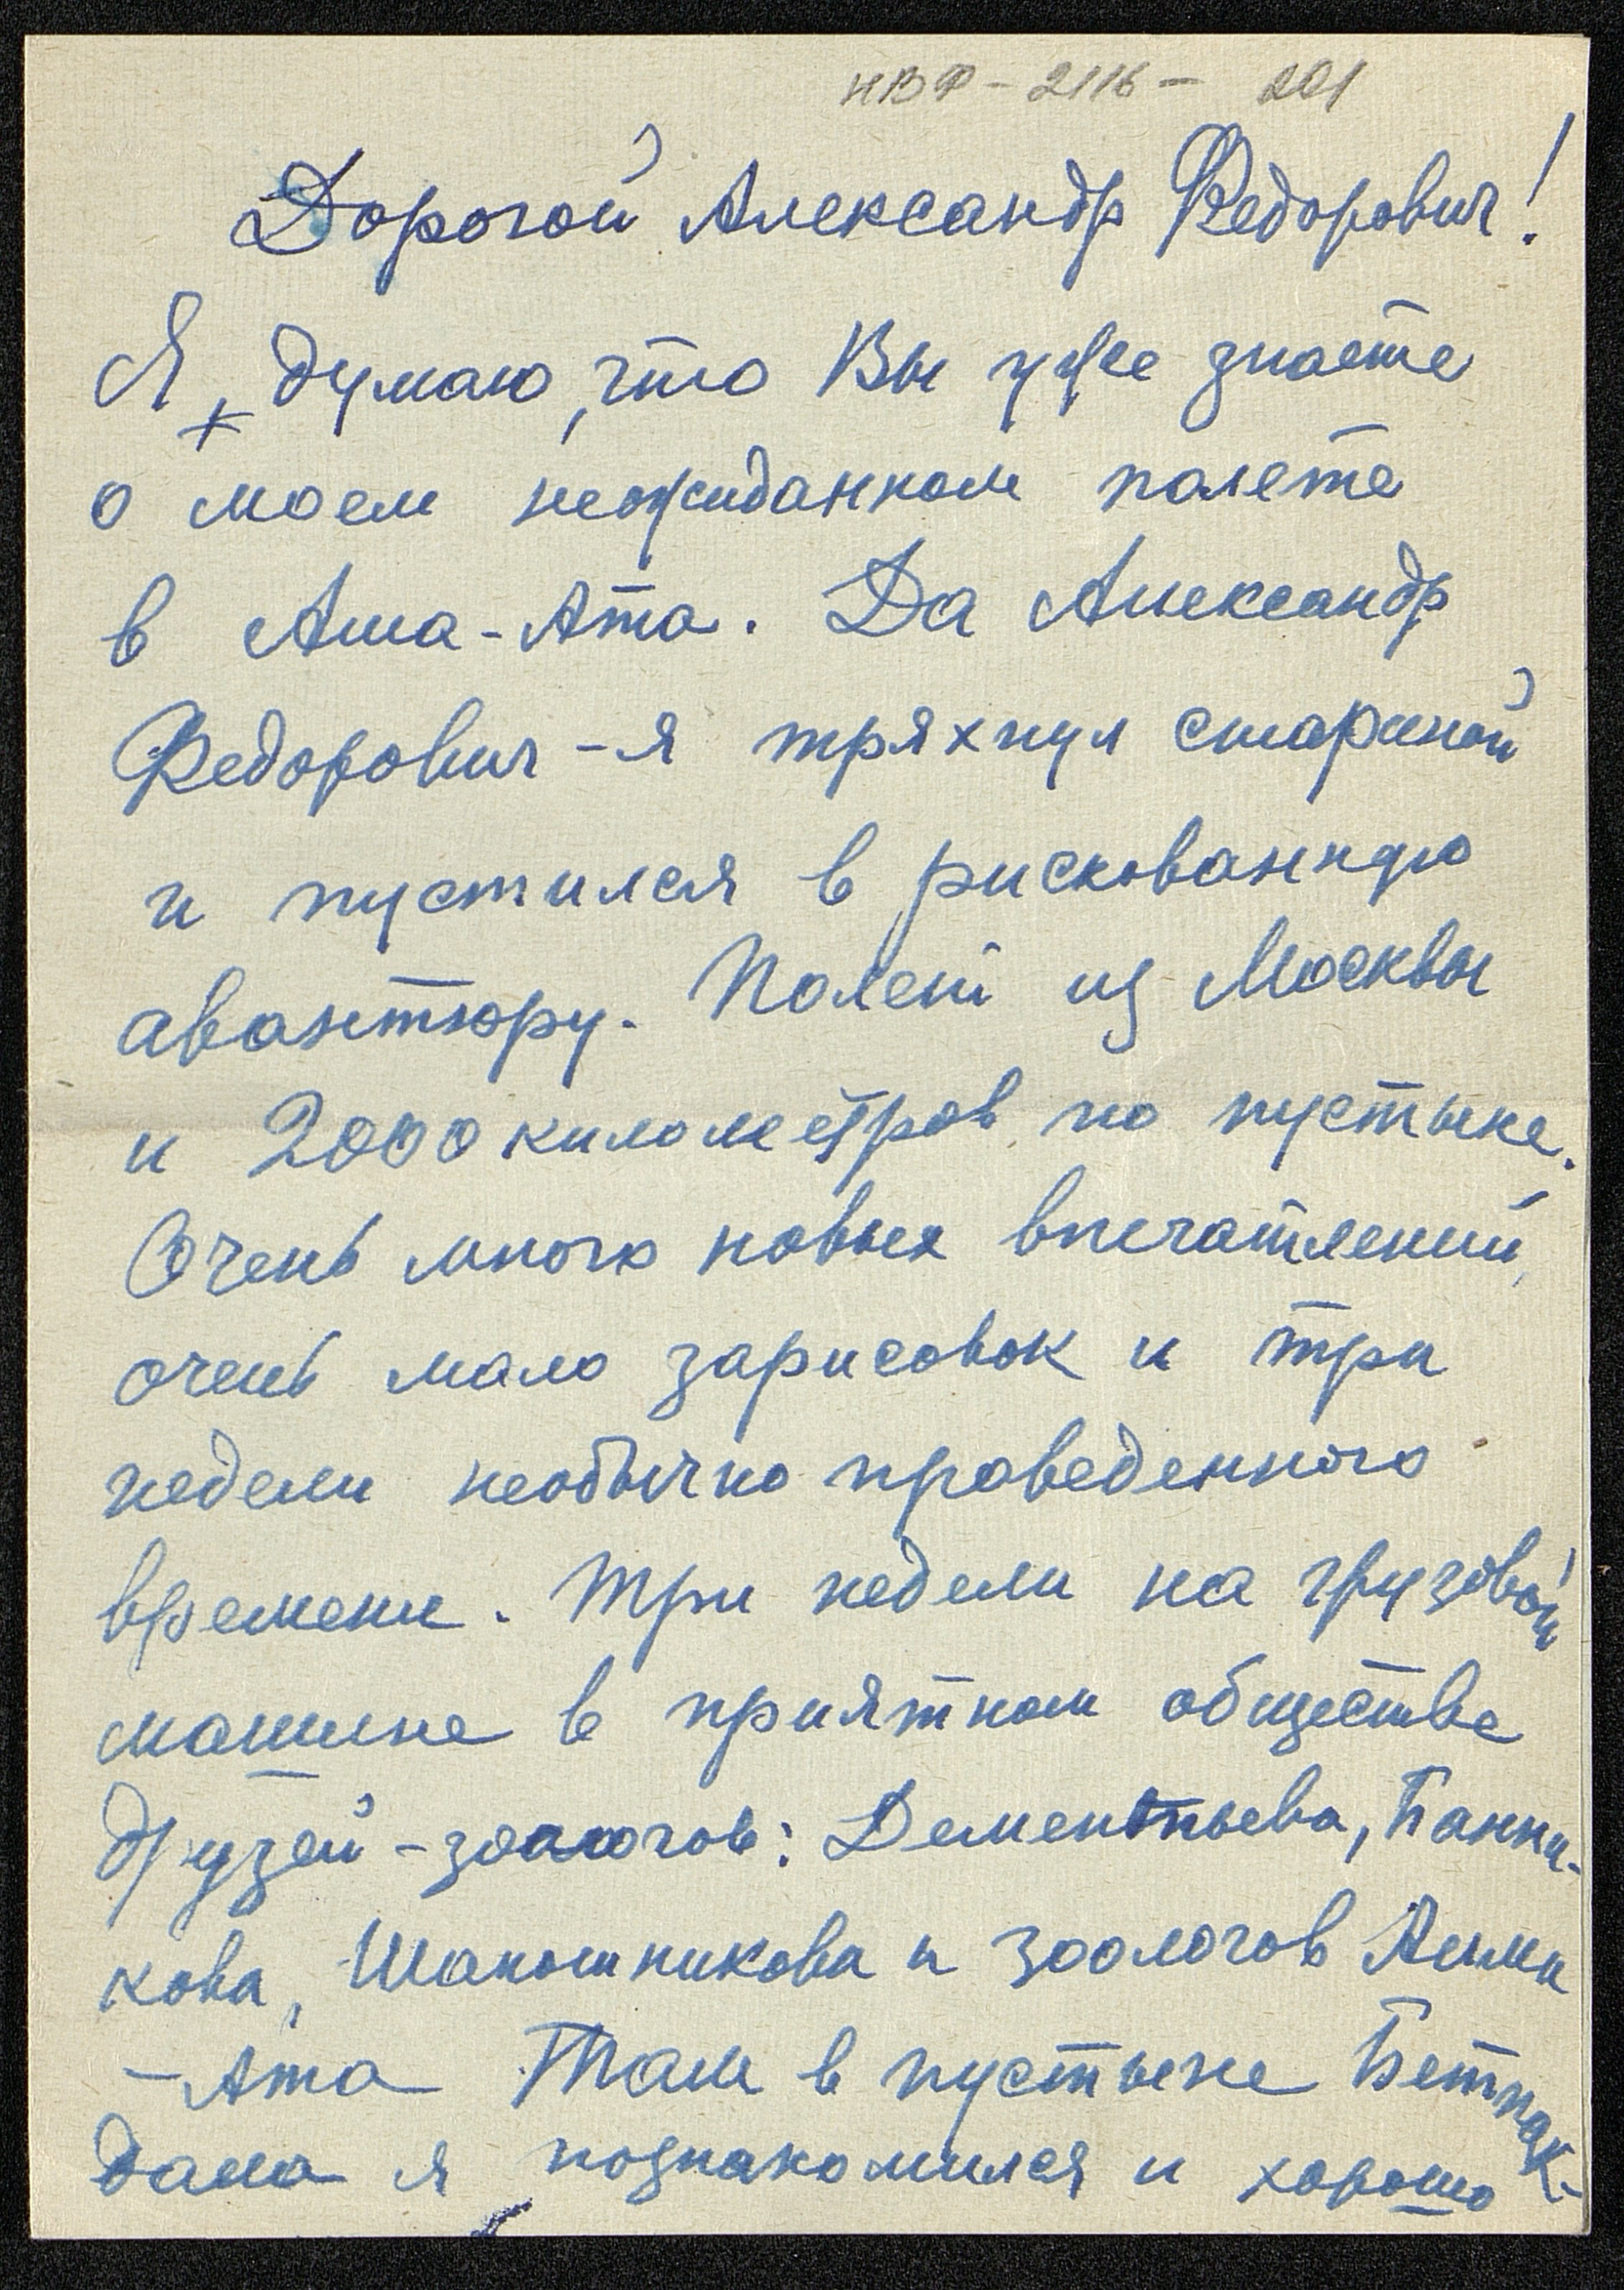 НВФ-2116- 201
Дорогой Александр Федорович!
Я, думаю, что Вы уже знаете
о моем неожиданном полете
в Алма-Ата. Да Александр
Федорович - я тряхнул стариной
и пустился в рискованную
авантюру. Полет из Москвы
и 2000 километров по пустыне.
Очень много новых впечатлений,
очень мало зарисовок и три
недели необычно проведенного
времени. Три недели на грузовой
машине в приятном обществе
друзей-зоологов: Дементьева, Банни-
кова, Шапошникова и зоологов Алма
-Ата Там в пустыне Бетпак-
дала я познакомился и хорошо